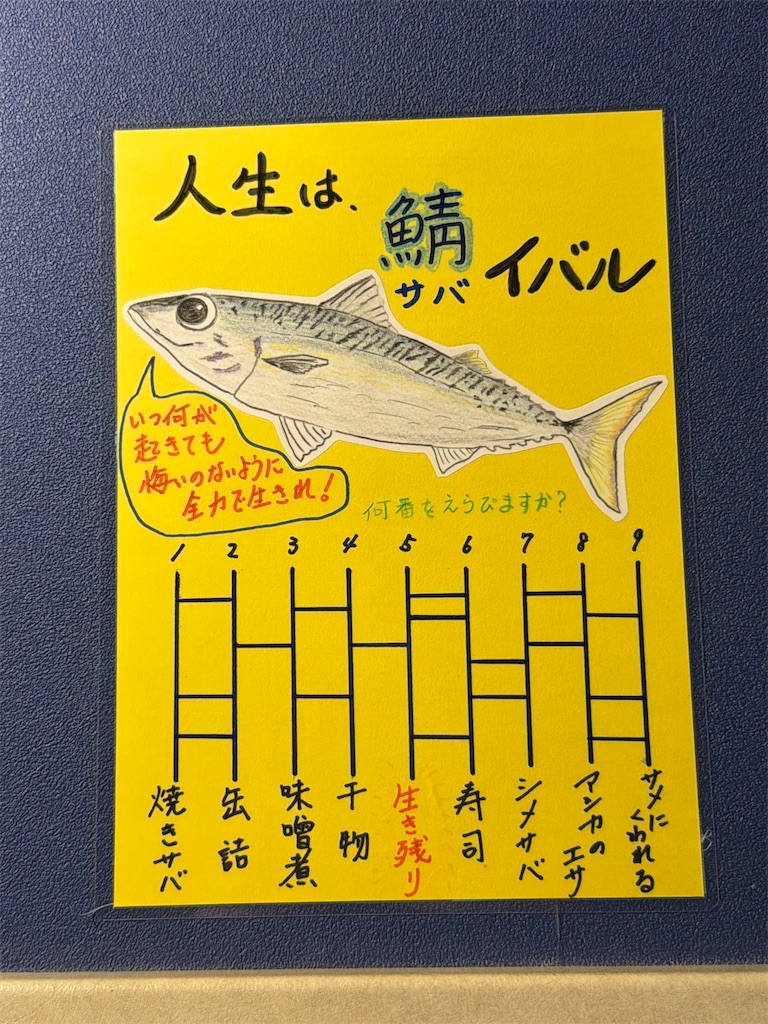 人生は、
鯖イバル
サバ
いつ何が
起きても
悔いのないように
全力で生きれ!
何番をえらびますか?
1 2 3 4 5 6 7 8 9
焼きサバ
缶詰
味噌煮
干物
生き残り
寿司
シメサバ
アシカのエサ
サメにくわれる